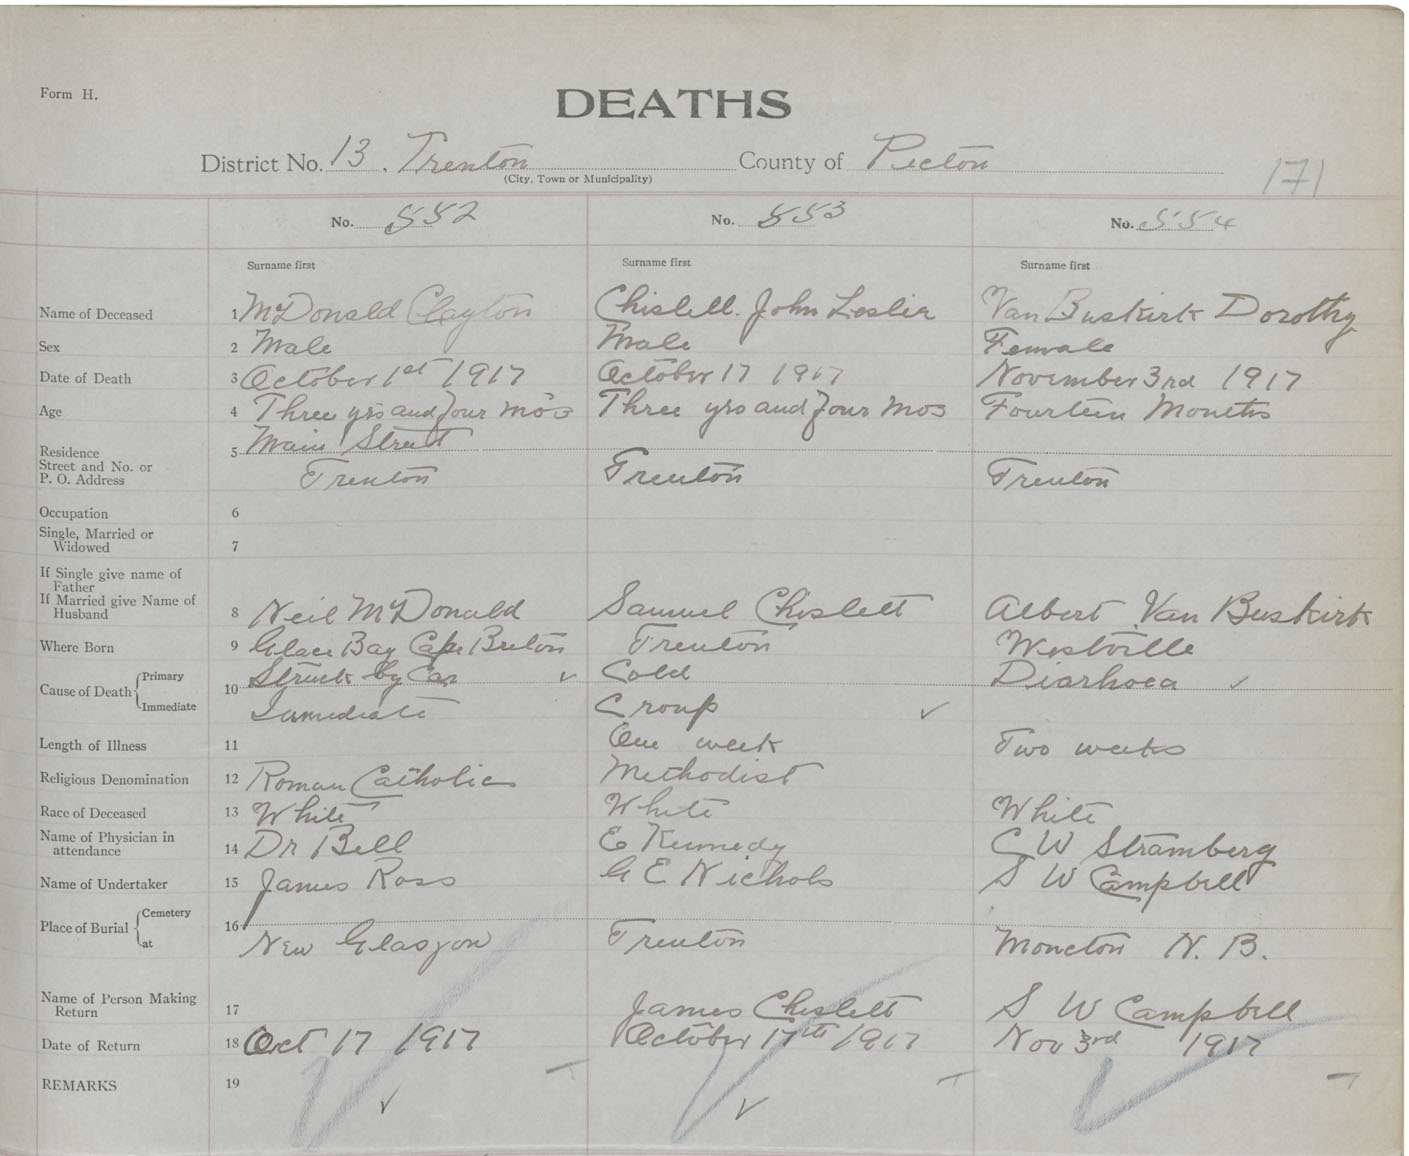 Form H.
DEATHS
District No. 13. Trenton County of Pictou
(City, Town or Municipality)
171
No. 552 No. 553 No. 554
Surname first Surname first Surname first
Name of Deceased 1 McDonald Clayton Chislett. John Leslie Van Buskirk Dorothy
Sex 2 Male Male Female
Date of Death 3 October 1st 1917 October 17 1917 November 3rd 1917
Age 4 Three yrs and four mos Three yrs and four mos Fourteen Months
Residence 5 Main Street
Street and No. or
P. O. Address Trenton Trenton Trenton
Occupation 6
Single, Married or
Widowed 7
If Single give name of
Father
If Married give Name of
Husband 8 Neil McDonald Samuel Chislett Albert Van Buskirk
Where Born 9 Glace Bay Cape Breton Trenton Westville
Cause of Death Primary 10 Struck by Car Cold Diarhoea
Immediate Immediate Croup
Length of Illness 11 One week Two weeks
Religious Denomination 12 Roman Catholic Methodist
Race of Deceased 13 White White White
Name of Physician in
attendance 14 Dr Bell E Kennedy C W Stramberg
Name of Undertaker 15 James Ross G E Nichols S W Campbell
Place of Burial Cemetery 16
at New Glasgow Trenton Moncton N. B.
Name of Person Making
Return 17 James Chislett S W Campbell
Date of Return 18 Oct 17 1917 October 17th 1917 Nov 3rd 1917
REMARKS 19